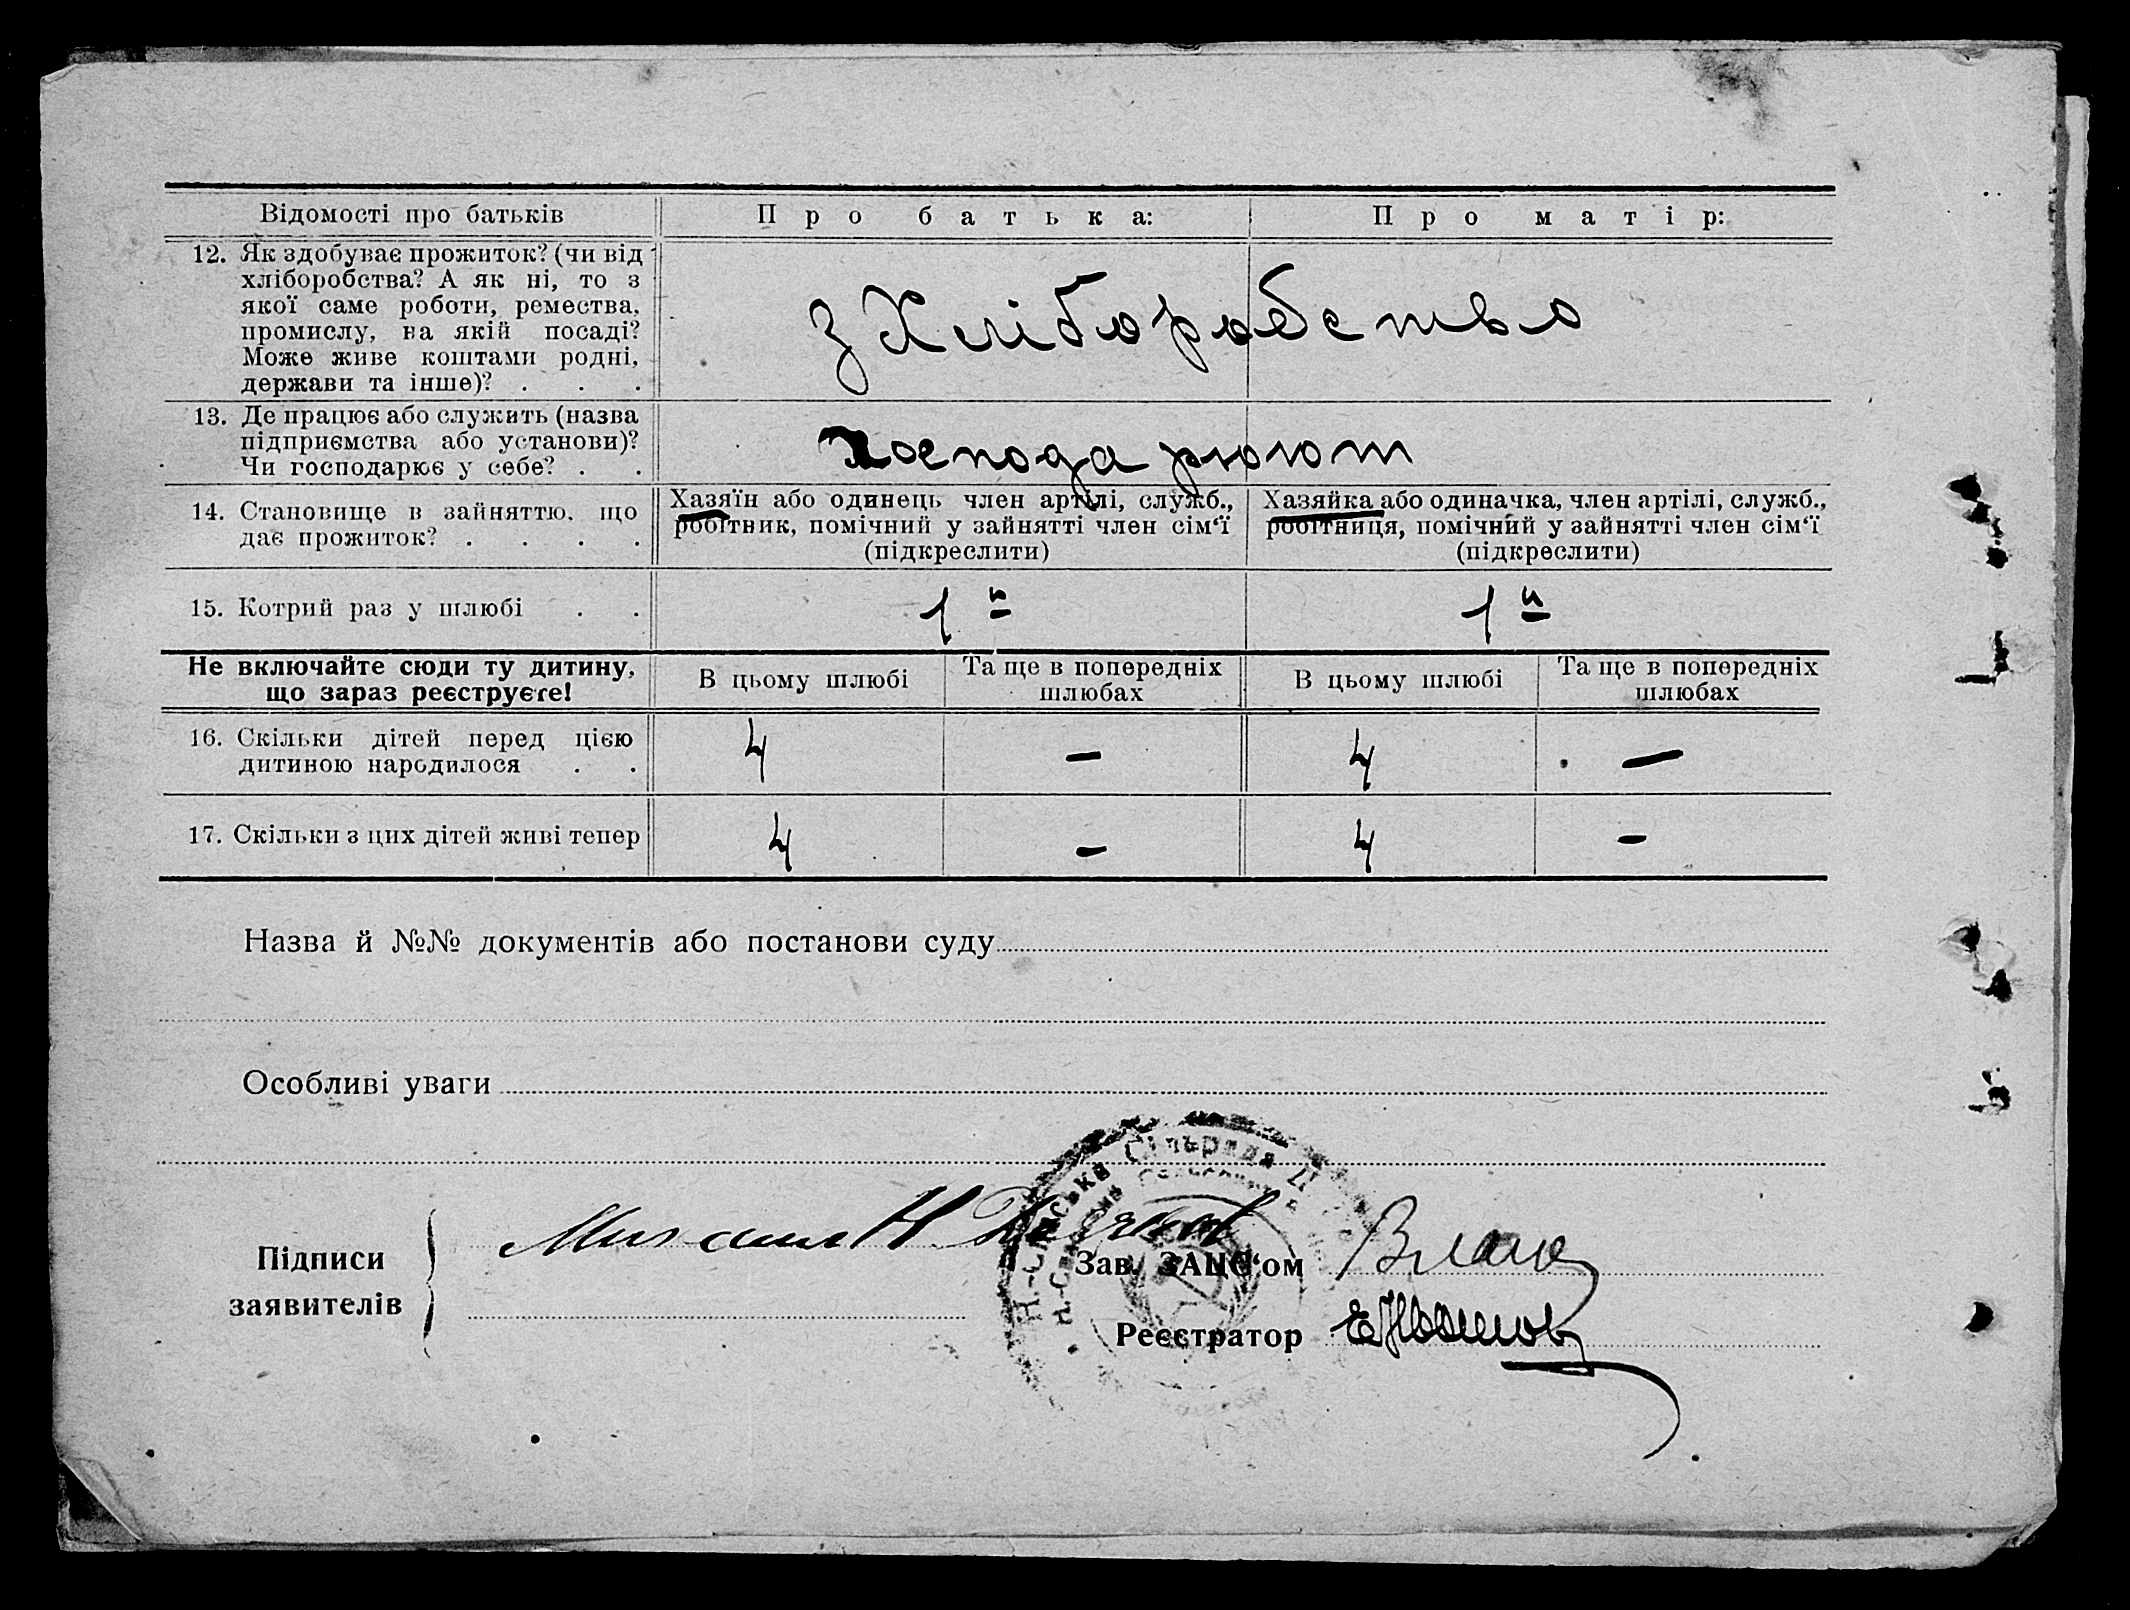 Відомості про батьків Про батька: Про матір:
12. Як здобуває прожиток? (чи від
хліборобства? А як ні, то з
якої саме роботи, ремества,
промислу, на якій посаді?
Може живе коштами родні,
держави та інше)? . . .
З Хліборобство
13. Де працює або служить (назва
підприємства або установи)?
Чи господарює у себе? . .
Господарюют
14. Становище в зайняттю, що
дає прожиток? . . . .
Хазяїн або одинець член артілі, служб.,
робітник, помічний у зайнятті член сім‘ї
(підкреслити)
Хазяйка або одиначка, член артілі, служб.,
робітниця, помічний у зайнятті член сім‘ї
(підкреслити)
15. Котрий раз у шлюбі . . 1й 1й
Не включайте сюди ту дитину,
що зараз реєструєте!
В цьому шлюбі
Та ще в попередніх
шлюбах
В цьому шлюбі
Та ще в попередніх
шлюбах
16. Скільки дітей перед цією
дитиною народилося . .
4 — 4 —
17. Скільки з цих дітей живі тепер 4 — 4 —
Назва й №№ документів або постанови суду
Особливі уваги
Підписи
заявителів
Михаил Н
Зав. ЗАЦС‘ом
Реєстратор
Сільрада